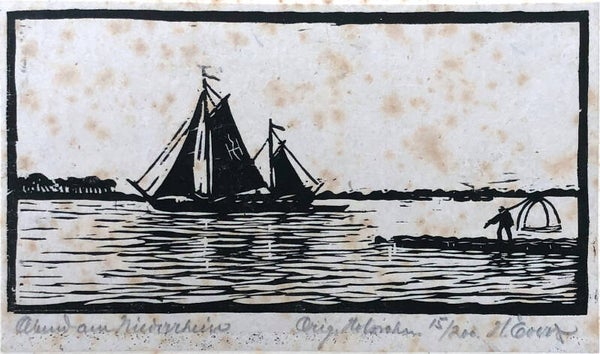 Abend am Niederrhein Orig. Holzschn. 15/200